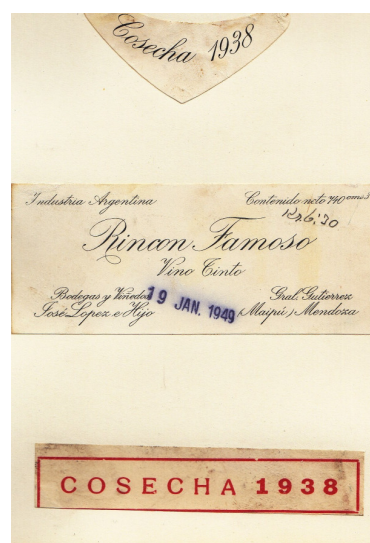 Cosecha 1938
Industria Argentina
Contenido neto 740 cms3
Rincon Famoso
Vino Tinto
Bodegas y Viñedos
José Lopez e Hijo
19 JAN. 1949
Gral. Gutierrez
(Maipú) Mendoza
COSECHA 1938